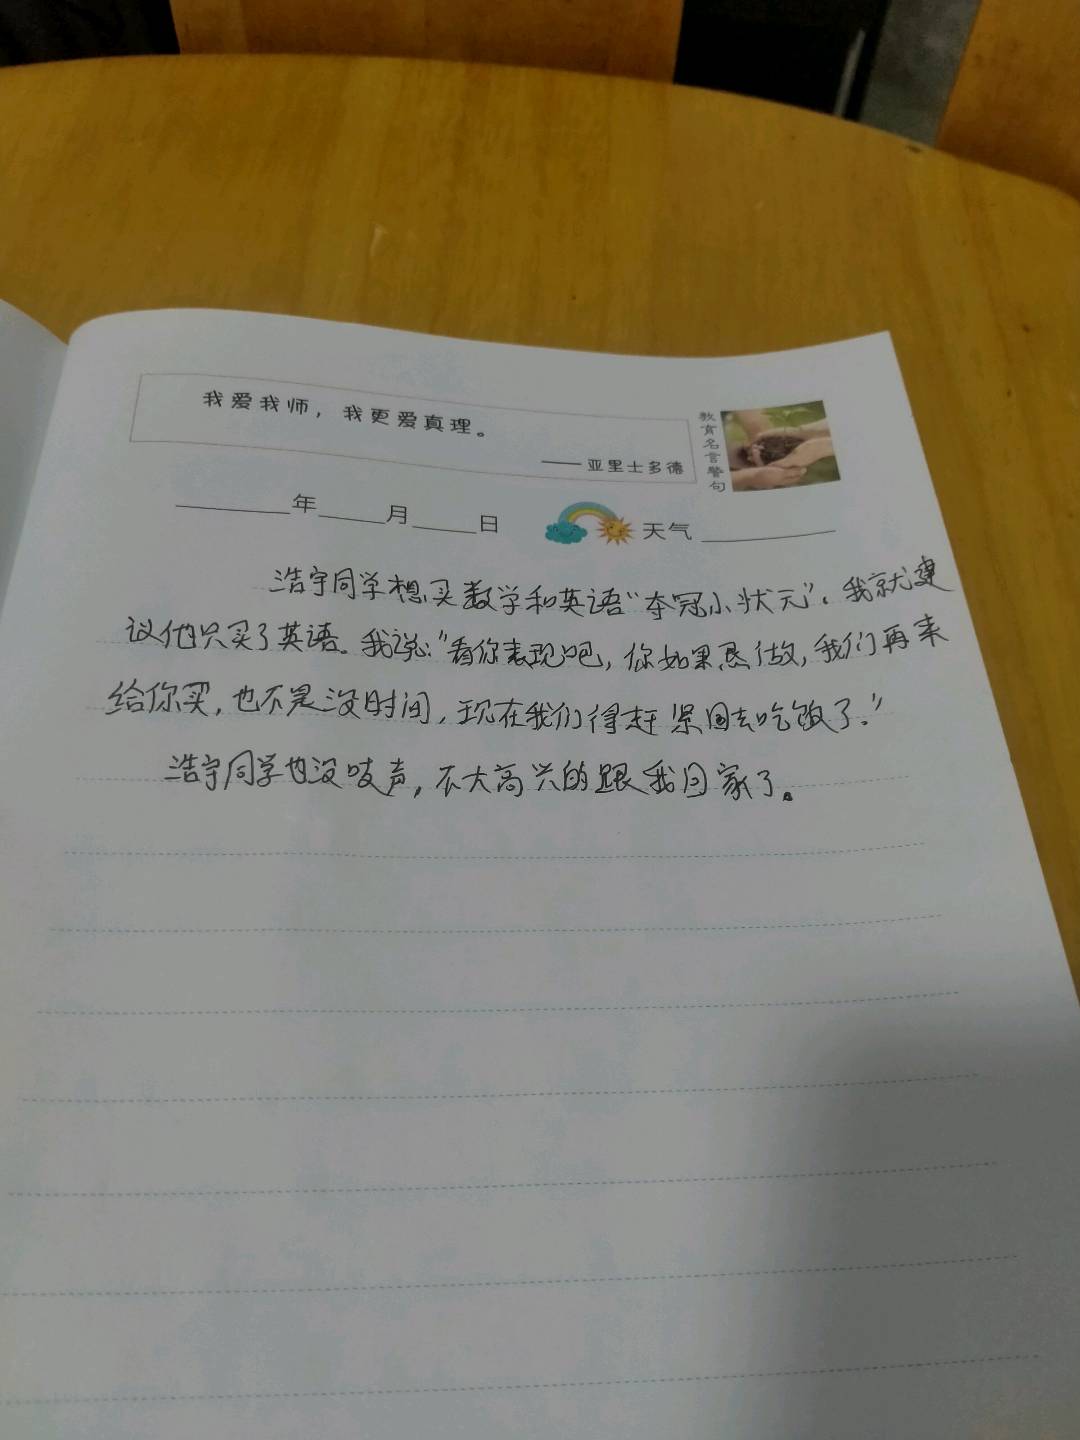 我爱我师，我更爱真理。
——亚里士多德
教育名言警句
年 月 日 天气
浩宇同学想买数学和英语“夺冠小状元”。我就建
议他只买了英语。我说：“看你表现吧，你如果愿做，我们再来
给你买，也不是没时间，现在我们得赶紧回去吃饭了。”
浩宇同学也没吱声，不大高兴的跟我回家了。